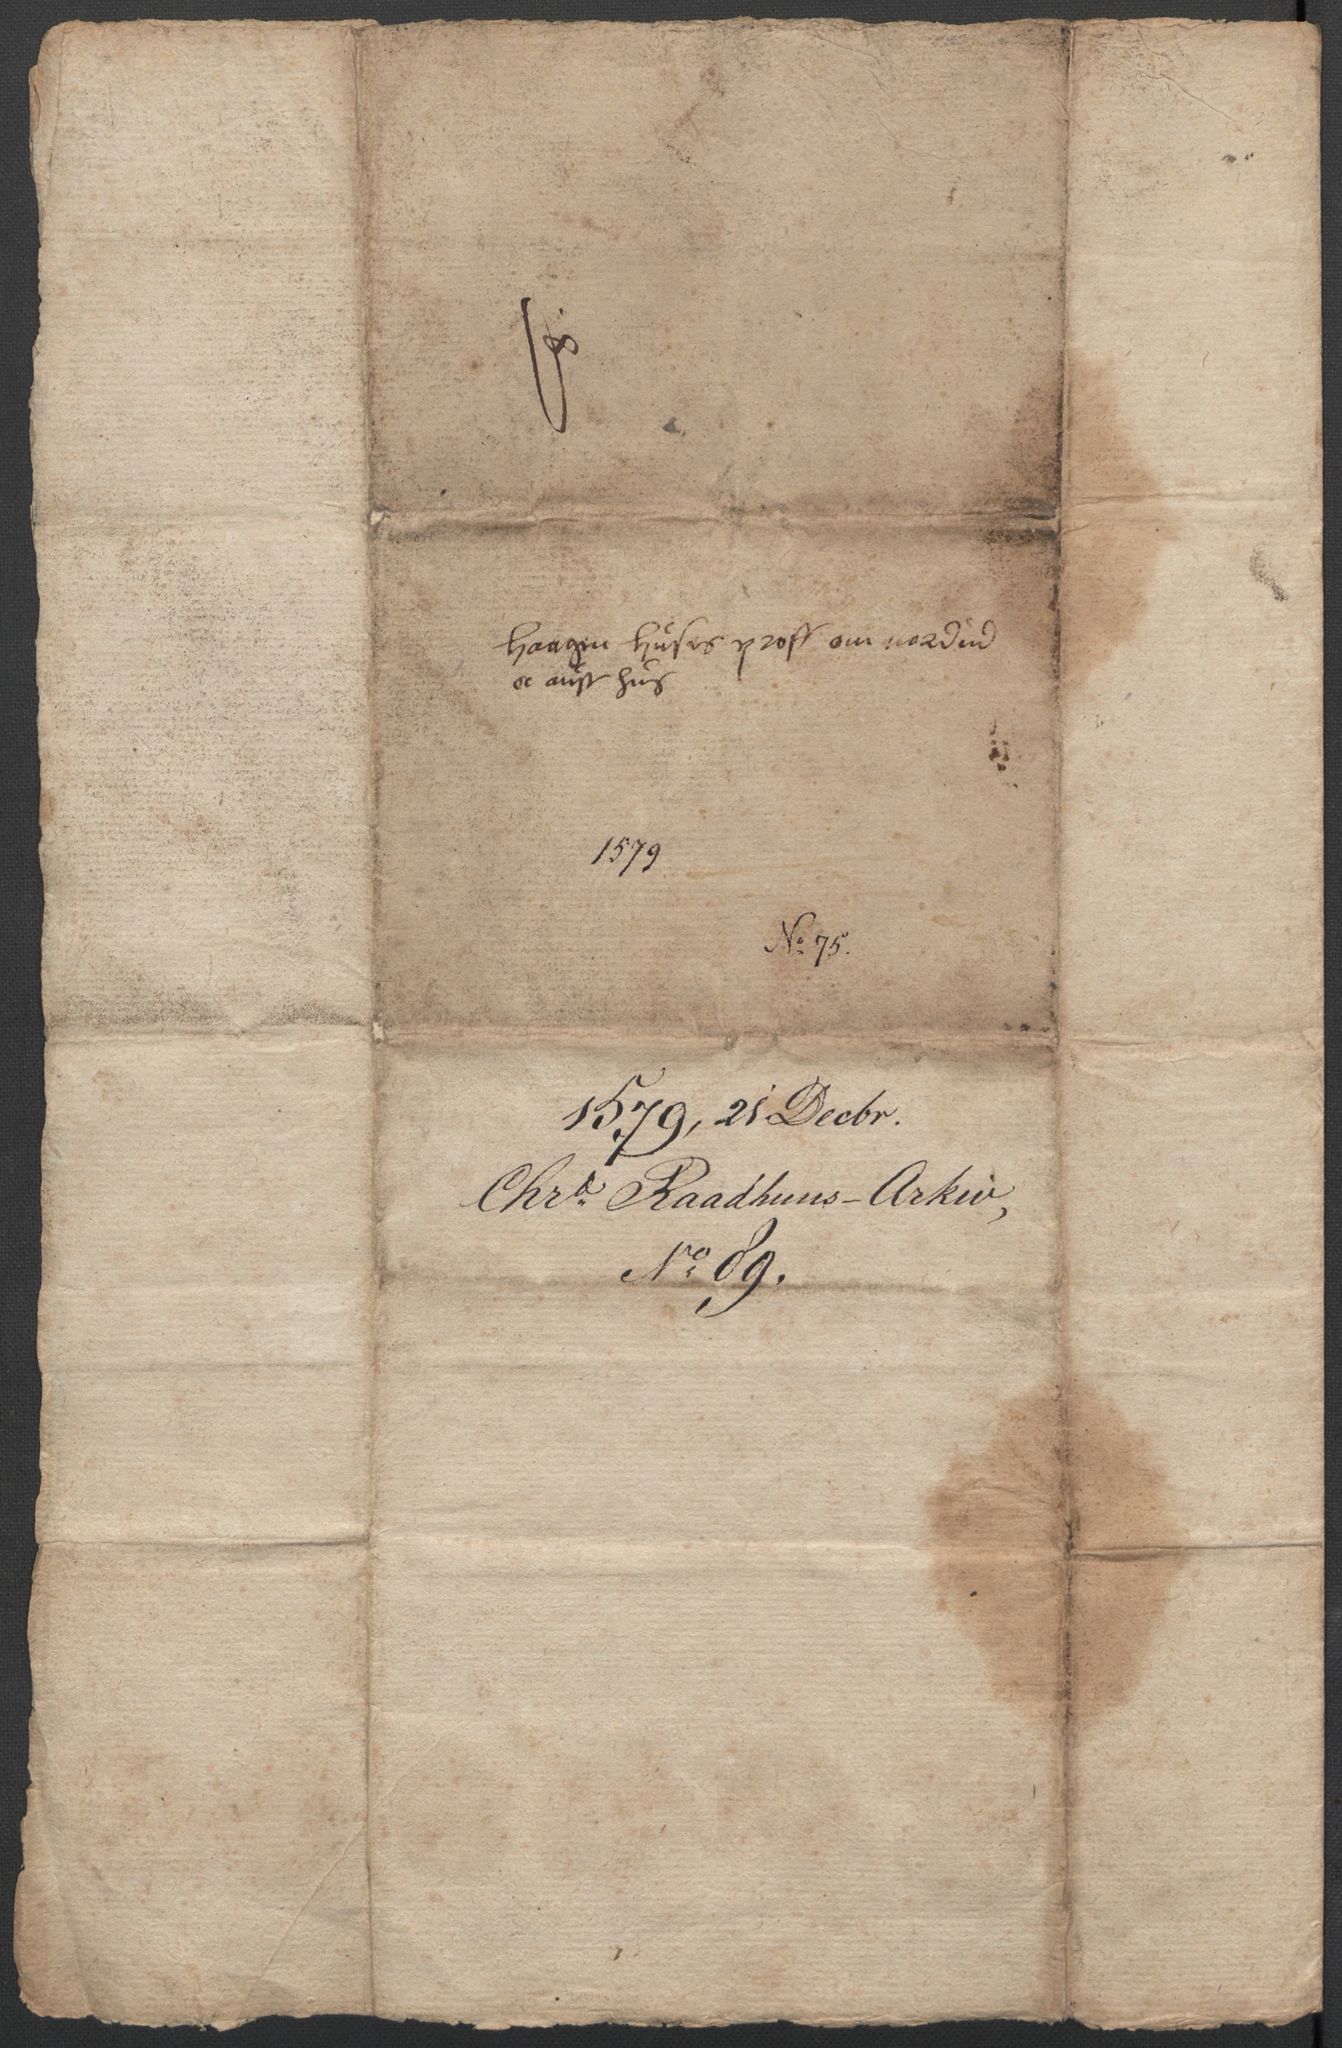 haagen huses proff om nordud
oc aust hus
1579
No 75.
1579, 21 Decbr.
Chra Raadhuus-Arkiv,
No 89.